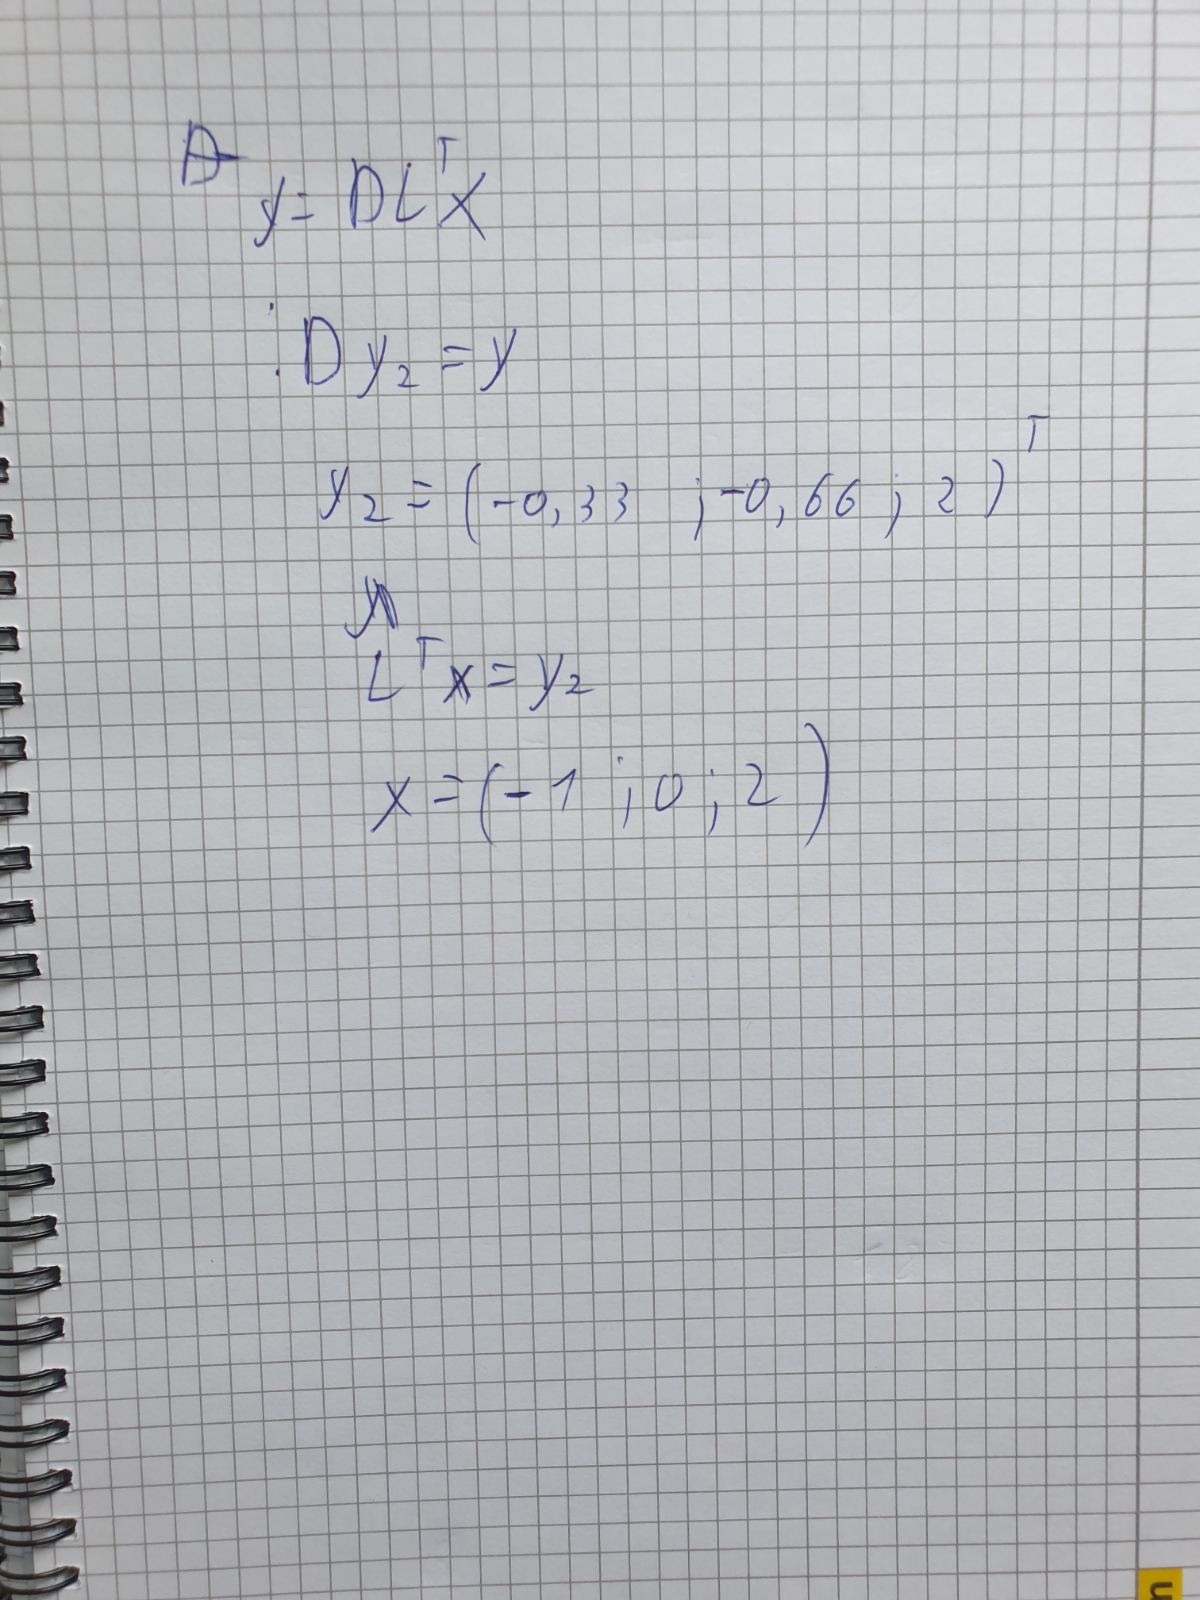 y = D L^T x
: D y₂ = y
y₂ = (-0,33 ; -0,66 ; 2)^T
L^T x = y₂
x = (-1 ; 0 ; 2)